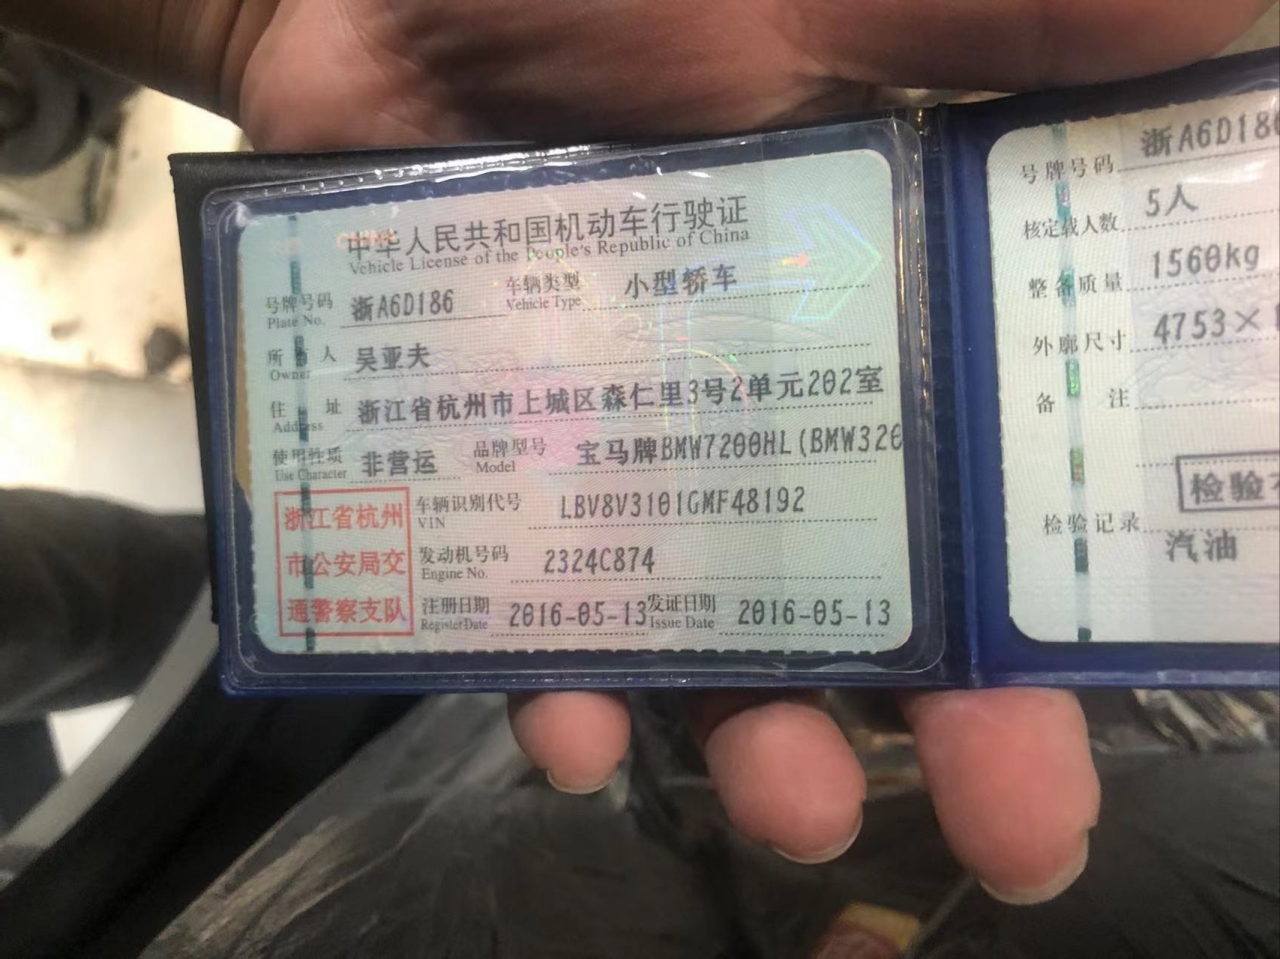 中华人民共和国机动车行驶证
Vehicle License of the People's Republic of China
号牌号码 浙A6D186 车辆类型 小型轿车
Plate No. Vehicle Type
所有人 吴亚夫
Owner
住址 浙江省杭州市上城区森仁里3号2单元202室
Address
使用性质 非营运 品牌型号 宝马牌BMW7200HL(BMW320
Use Character Model
浙江省杭州
市公安局交
通警察支队
车辆识别代号 LBV8V3101GMF48192
VIN
发动机号码 2324C874
Engine No.
注册日期 2016-05-13 发证日期 2016-05-13
Register Date Issue Date
号牌号码 浙A6D186
核定载人数 5人
整备质量 1560kg
外廓尺寸 4753×
备注
检验
检验记录
汽油